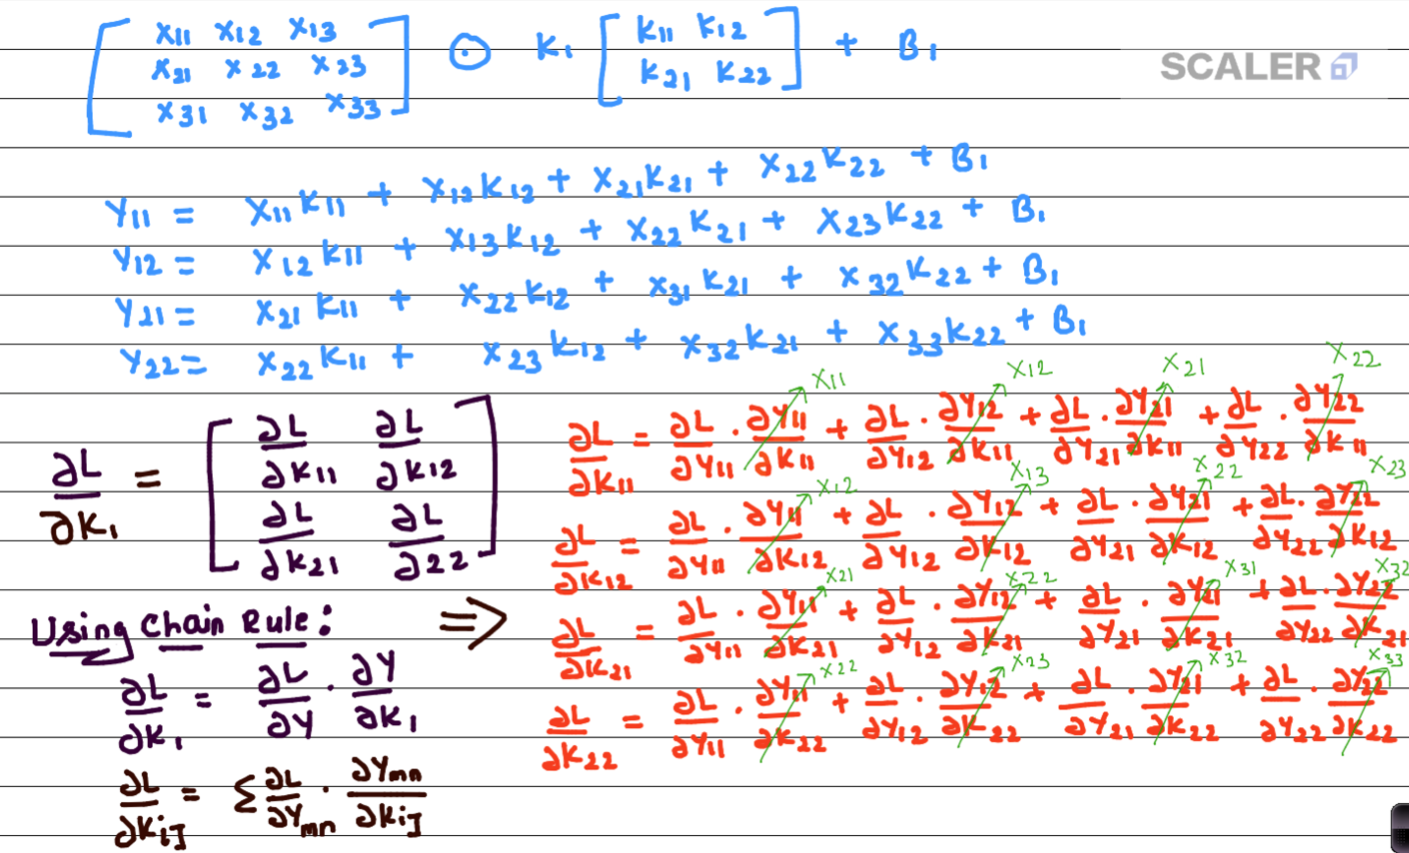 [ x11 x12 x13 ] ⊙ K1 [ K11 K12 ] + B1
x21 x22 x23 K21 K22
x31 x32 x33
SCALER
Y11 = X11K11 + X12K12 + X21K21 + X22K22 + B1
Y12 = X12K11 + X13K12 + X22K21 + X23K22 + B1
Y21 = X21K11 + X22K12 + X31K21 + X32K22 + B1
Y22 = X22K11 + X23K12 + X32K21 + X33K22 + B1
∂L/∂K1 = [ ∂L/∂K11 ∂L/∂K12
∂L/∂K21 ∂L/∂22 ]
Using Chain Rule: =>
∂L/∂K1 = ∂L/∂Y . ∂Y/∂K1
∂L/∂Kij = Σ ∂L/∂Ymn . ∂Ymn/∂Kij
X11 X12 X21 X22
∂L/∂K11 = ∂L/∂Y11 . ∂Y11/∂K11 + ∂L/∂Y12 . ∂Y12/∂K11 + ∂L/∂Y21 . ∂Y21/∂K11 + ∂L/∂Y22 . ∂Y22/∂K11
X12 X13 X22 X23
∂L/∂K12 = ∂L/∂Y11 . ∂Y11/∂K12 + ∂L/∂Y12 . ∂Y12/∂K12 + ∂L/∂Y21 . ∂Y21/∂K12 + ∂L/∂Y22 . ∂Y22/∂K12
X21 X22 X31 X32
∂L/∂K21 = ∂L/∂Y11 . ∂Y11/∂K21 + ∂L/∂Y12 . ∂Y12/∂K21 + ∂L/∂Y21 . ∂Y21/∂K21 + ∂L/∂Y22 . ∂Y22/∂K21
X22 X23 X32 X33
∂L/∂K22 = ∂L/∂Y11 . ∂Y11/∂K22 + ∂L/∂Y12 . ∂Y12/∂K22 + ∂L/∂Y21 . ∂Y21/∂K22 + ∂L/∂Y22 . ∂Y22/∂K22